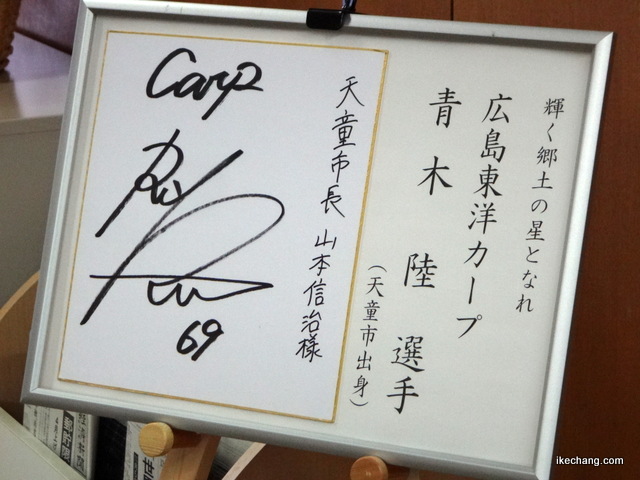 輝く郷土の星となれ
広島東洋カープ
青木 陸 選手
(天童市出身)
天童市長 山本信治様
Carp
69
ikechang.com